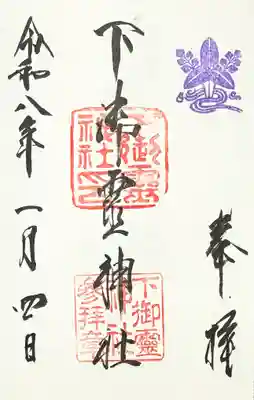 奉拝
下御靈神社
下御靈神社
下御靈
神社
参拝章
令和八年一月四日